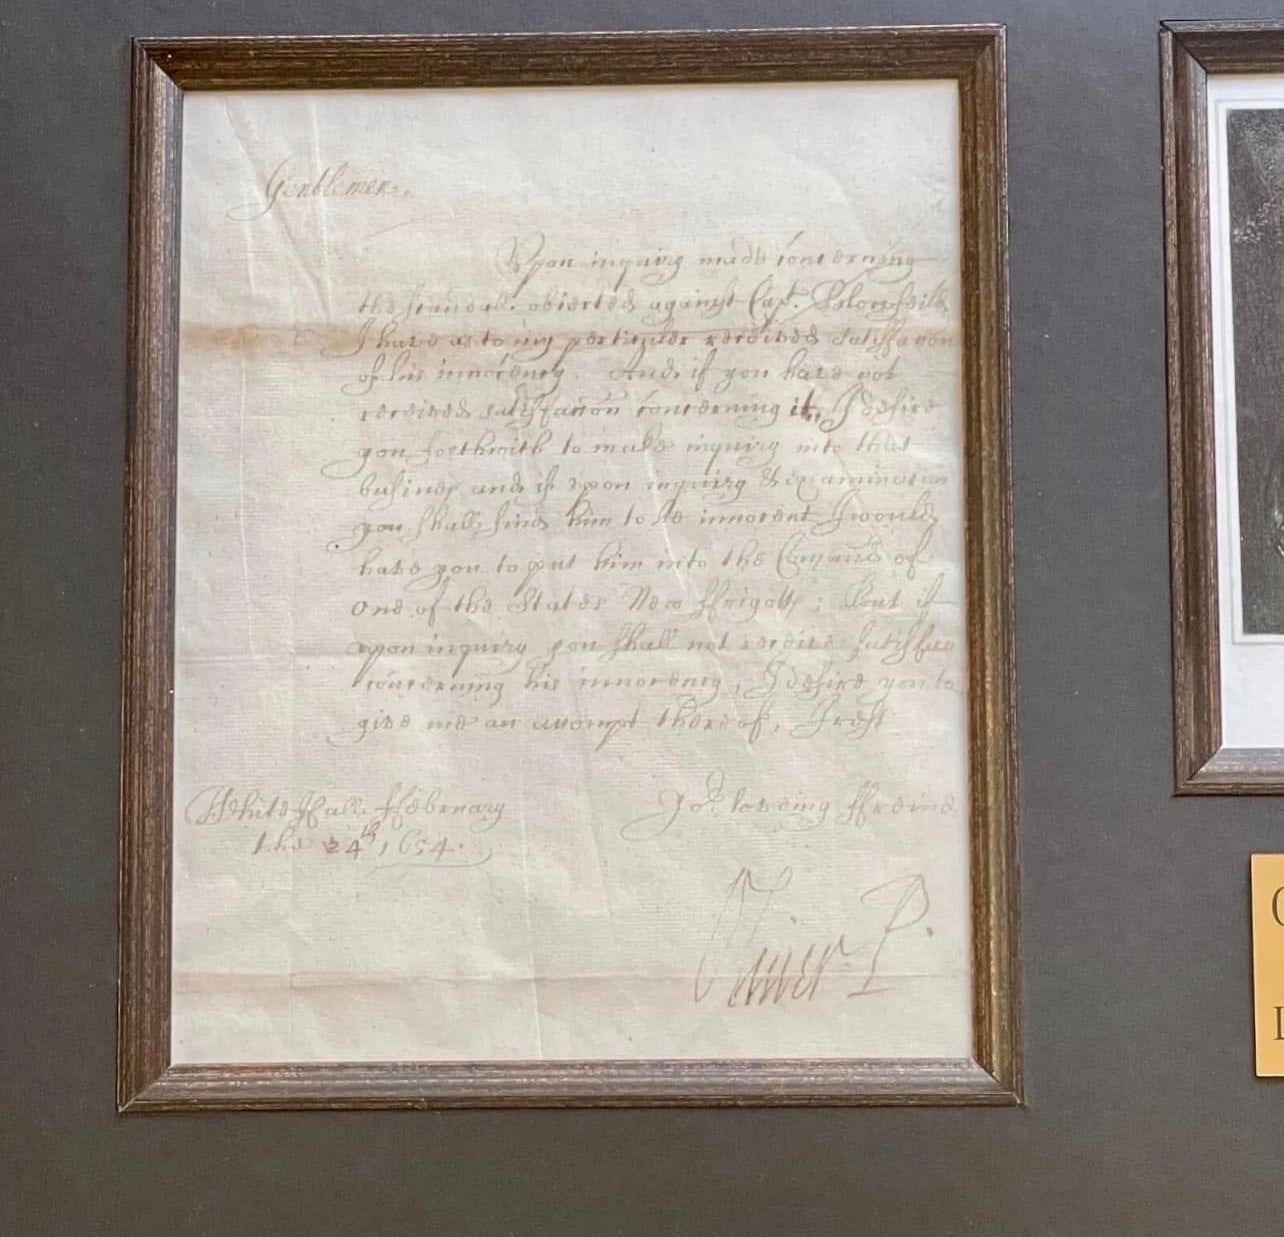 Gentlemen.
Upon inquiry made concerning
the scandall obiected against Cap:
I have as to my perticuler received satisfaccon
of his innocency. And if you have not
received satisfaccon concerning it, I desire
you forthwith to make inquiry into that
busines and if upon inquiry & examinacon
you shall find him to be innocent I would
have you to put him into the Comand of
one of the States New ffrigatts; But if
upon inquiry you shall not receive
concerning his innocency, I desire you to
give me an accompt thereof, I rest
Yor loveing ffreind
White Hall ffebruary
the 24th, 1654.
Oliver P.